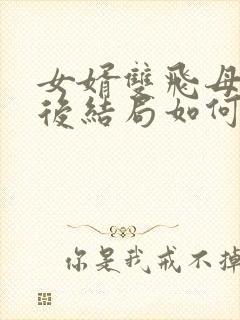 女婿雙飛母
後結局如何
你是我戒不掉